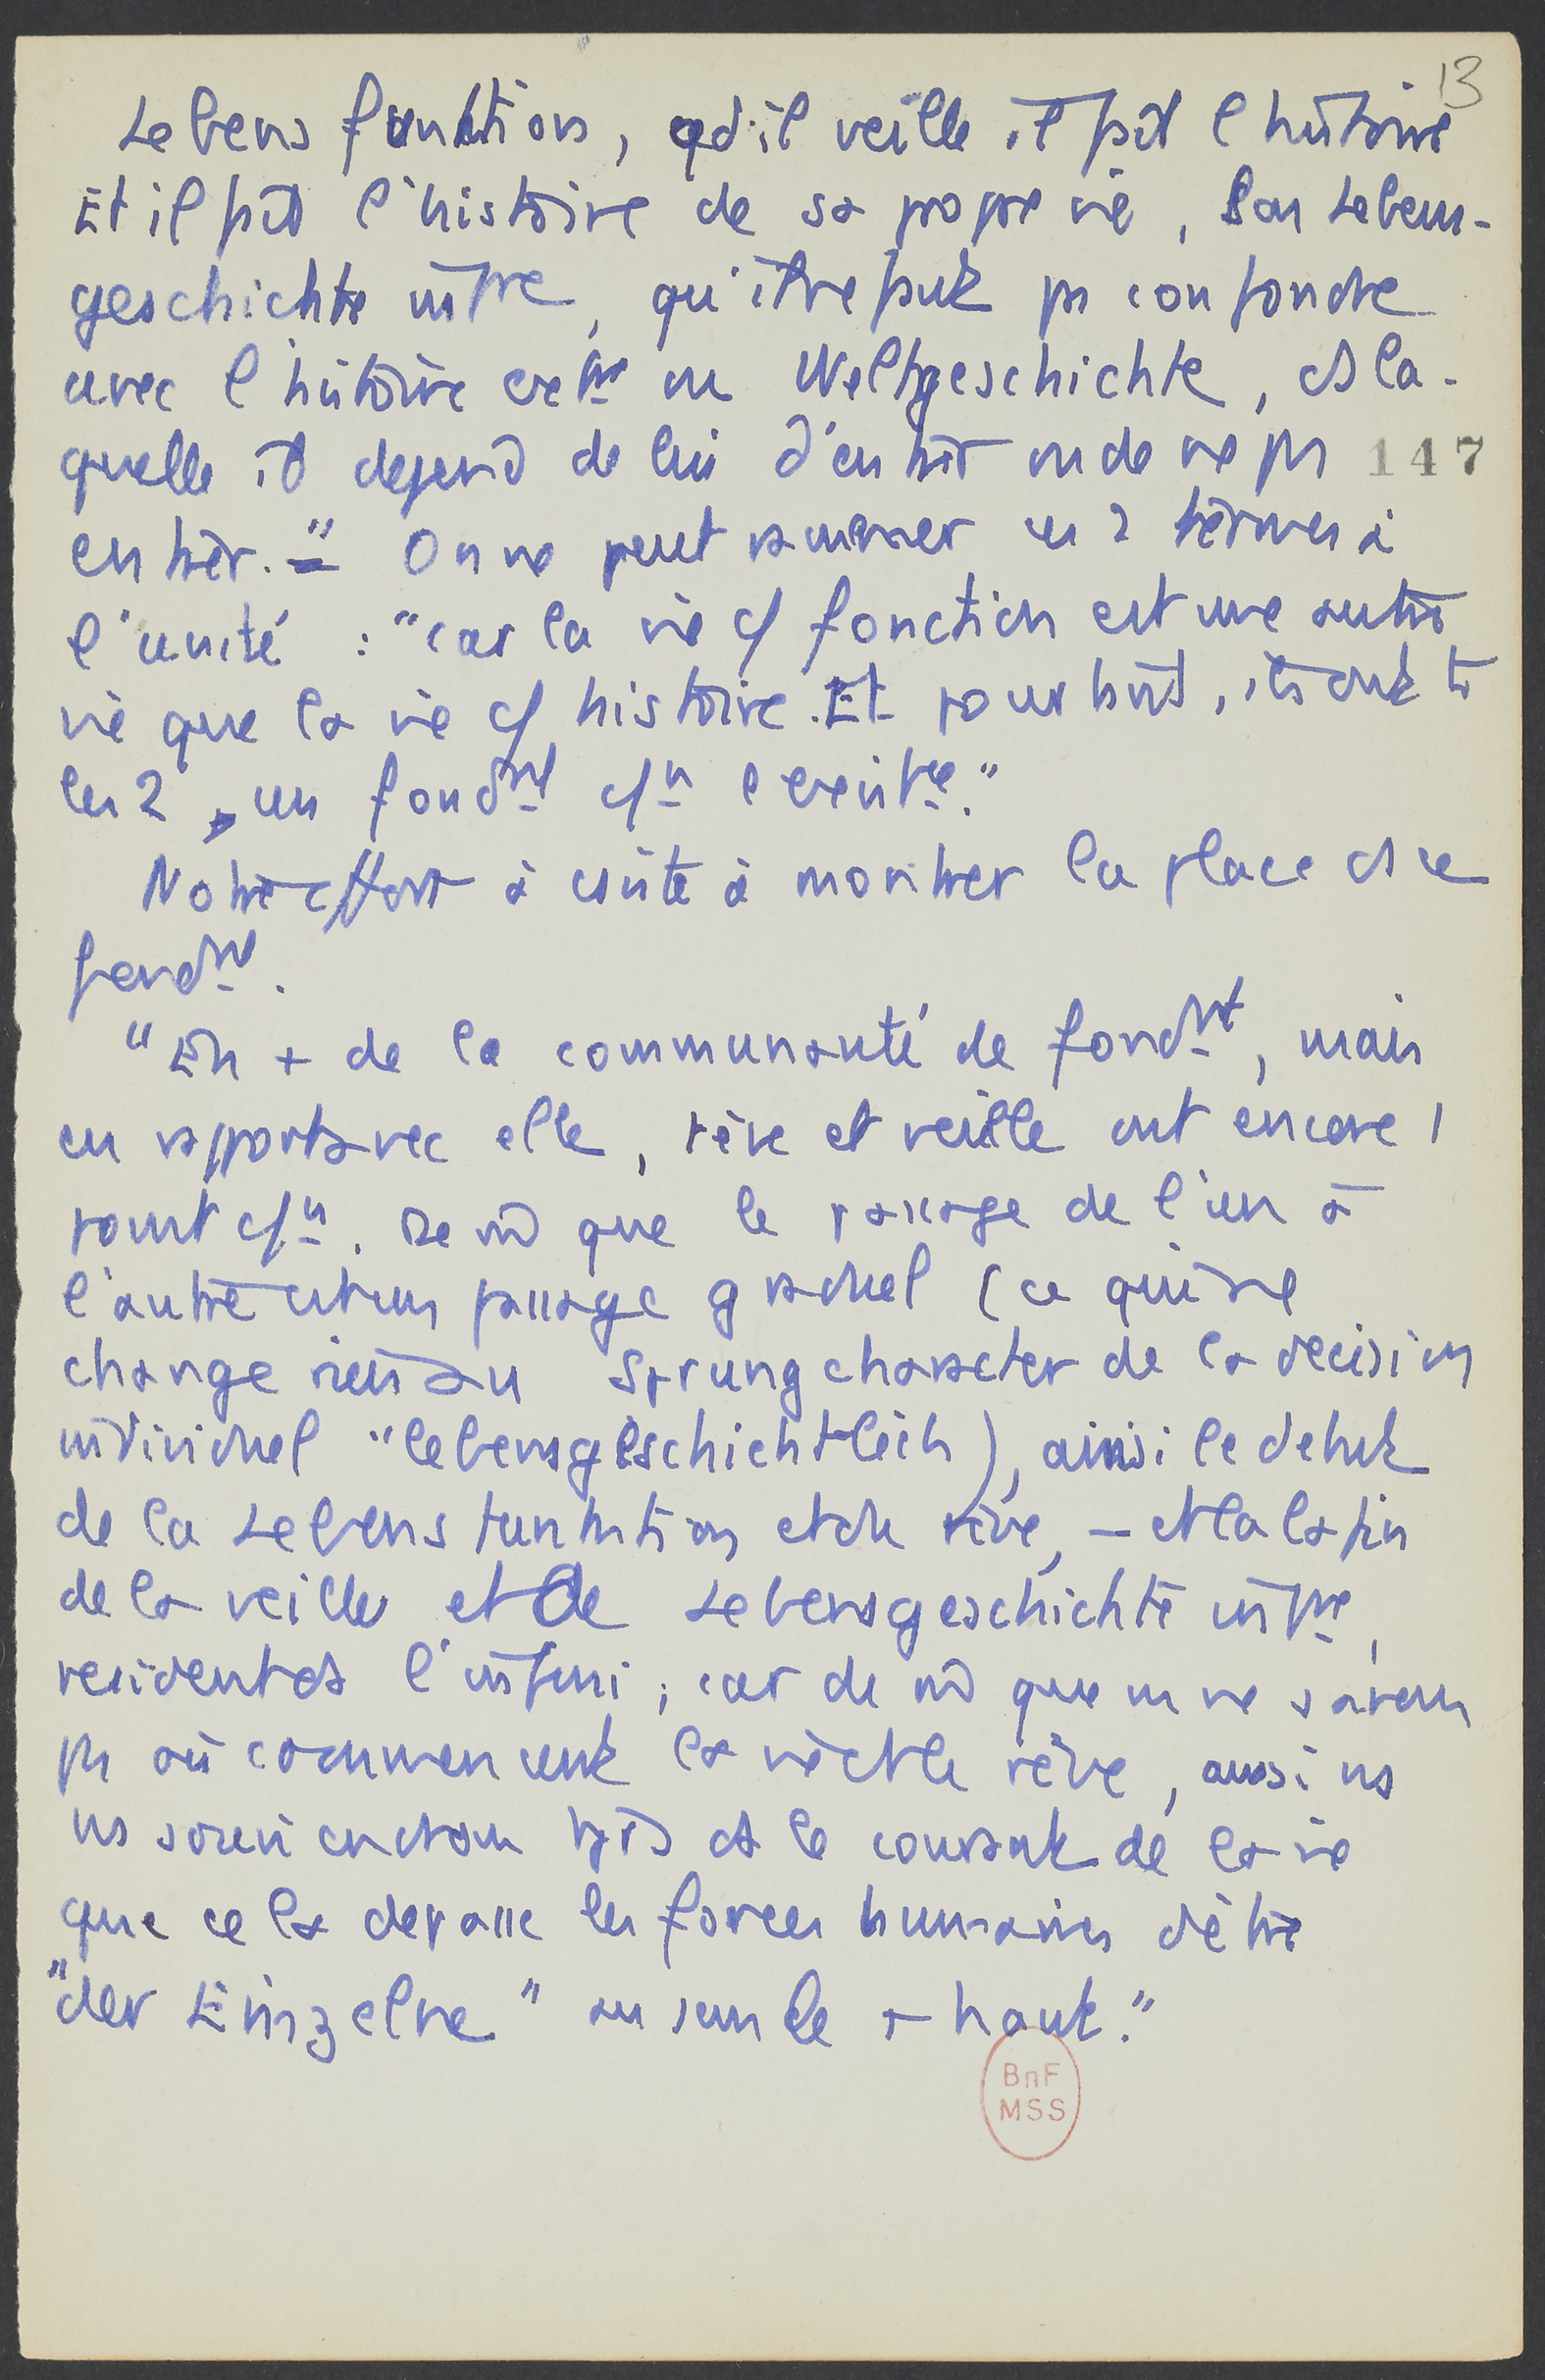 13
Lebensfunktion, qd il veille il fait l'histoire
Et il fait l'histoire de sa propre vie, son Lebens-
geschichte intre, qu'il ne faut pas confondre
avec l'histoire extre ou Weltgeschichte, ds la-
quelle il depend de lui d'entrer ou de ne pas
147
entrer." On ne peut ramener ces 2 termes à
l'unité : "car la vie c/ fonction est une autre
vie que la vie c/ histoire. Et pourtant, ils ont ts
les 2, un fondmt c/n l'existce."
Notre effort a consisté à montrer la place ds ce
fondmt.
"En + de la communauté de fondmt, mais
en rapport avec elle, rêve et veille ont encore 1
point c/n. De m que le passage de l'un à
l'autre est un passage graduel (ce qui ne
change rien au Sprungcharacter de la decision
individuel "lebensgeschichtlich), ainsi le debut
de la Lebensfunktion et du rêve, – et la la fin
de la veille et de Lebensgeschichte intre,
resident ds l'infini ; car de m que ns ne savons
pas où commencent la vie et le rêve, aussi ns
ds le courant de la vie
que cela depasse les forces humaines d'être
"der Einzelne" au sens le + haut."
BnF
MSS